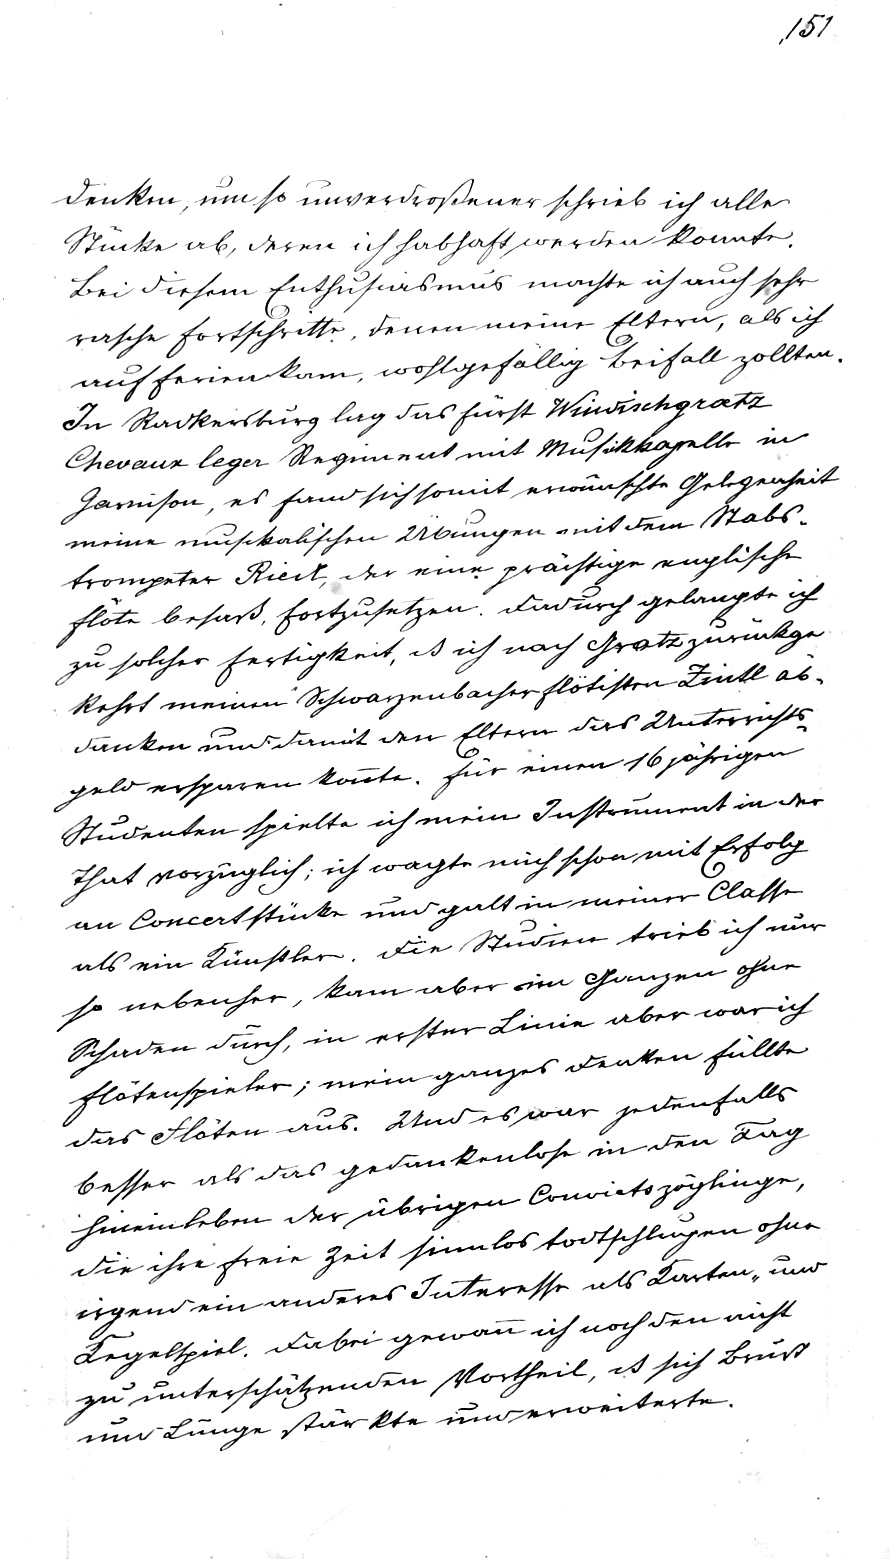 151
denken, um so unverdroßener schrieb ich alle
Stücke ab, deren ich habhaft werden konnte.
Bei diesem Enthusiasmus machte ich auch sehr
rasche Fortschritte, denen meine Eltern, als ich
auf Ferien kam, wohlgefällig Beifall zollten.
In Radkersburg lag das Fürst Windischgraetz
Chevaux leger Regiment mit Musikkapelle in
Garnison, es fand sich somit erwünschte Gelegenheit
meine musikalischen Übungen mit dem Stabs-
trompeter Riedl, der eine prächtige englische
Flöte besaß, fortzusetzen. Dadurch gelangte ich
zu solcher Fertigkeit, daß ich nach Gratz zurückge
kehrt meinen Schwarzenbacher Flötisten Zintl ab-
danken und damit den Eltern das Unterrichts-
geld ersparen kon̄te. Für einen 16 jährigen
Studenten spielte ich mein Instrument in der
That vorzüglich; ich wagte mich schon mit Erfolg
an Concertstücke und galt in meiner Classe
als ein Künstler. Die Studien trieb ich nur
so nebenher, kam aber im Ganzen ohne
Schaden durch, in erster Linie aber war ich
Flötenspieler; mein ganzes Denken füllte
das Flöten aus. Und es war jedenfalls
besser als das gedankenlose in den Tag
hineinleben der übrigen Convictszöglinge,
die ihre freie Zeit sinnlos todtschlugen ohne
irgend ein anderes Interesse als Karten- und
Kegelspiel. Dabei gewan̄ ich noch den nicht
zu unterschätzenden Vortheil, daß sich Brust
und Lunge stärkte und erweiterte.